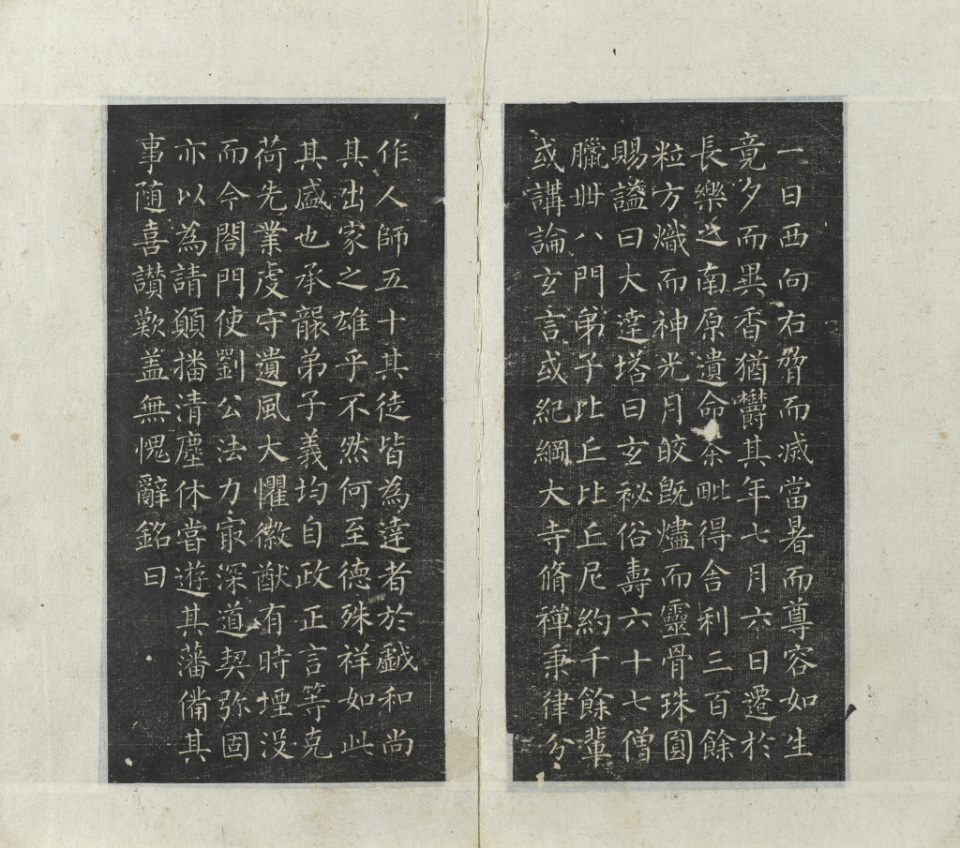 一日西向右脅而滅當暑而尊容如生
竟夕而異香猶欝其年七月六日遷於
長樂之南原遺命荼毗得舍利三百餘
粒方熾而神光月皎既燼而靈骨珠圓
賜謚曰大達塔曰玄祕俗壽六十七僧
臘卌八門弟子比丘比丘尼約千餘輩
或講論玄言或紀綱大寺脩禪秉律分
作人師五十其徒皆為達者於戲和尚
其出家之雄乎不然何至德殊祥如此
其盛也承襲弟子義均自政正言等克
荷先業虔守遺風大懼徽猷有時堙没
而今閤門使劉公法力㝡深道契弥固
亦以為請願播清塵休嘗遊其藩備其
事随喜讃歎盖無愧辭銘曰